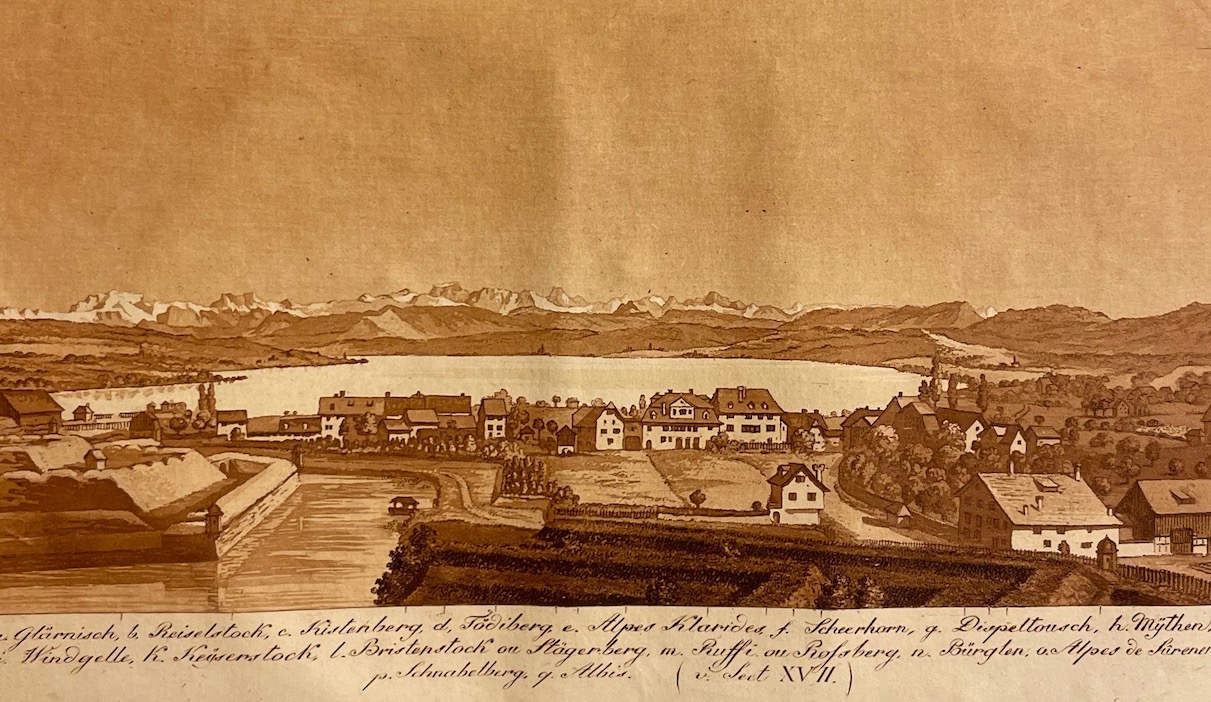 a. Glärnisch, b. Reiselstock, c. Kistenberg, d, Tödiberg, e. Alpes Klarides, f. Scheerhorn, g. Dispeltousch, h. Mÿthen,
i. Windgelle, k. Keiserstock, l. Bristenstock ou Stägerberg, m. Ruffi ou Rossberg, n. Bürglen, o. Alpes de Sürenen
p. Schnabelberg, q. Albis. (v. Sect XVII.)